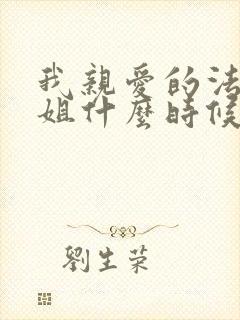 我親愛的法
姐什麼時候
劉生荣